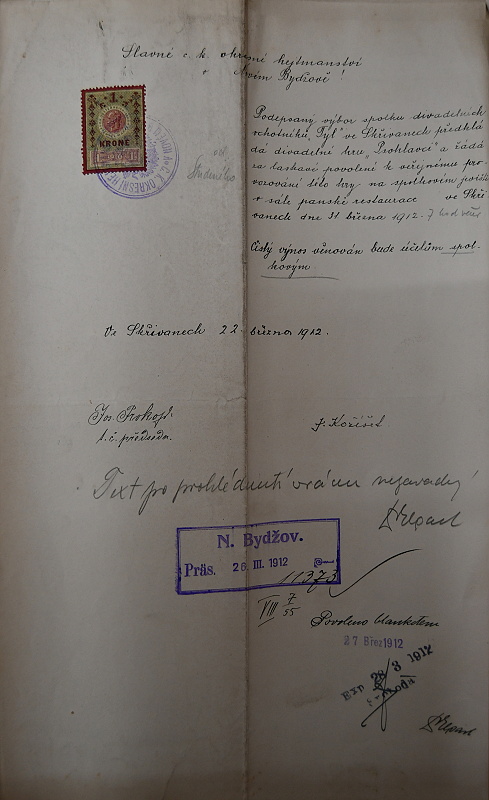 Slavné c. k. okresní hejtmanství
v Novém Bydžově!
1
KRONE
Podepsaný výbor spolku divadelních
ochotníků "Tyl" ve Skřivanech předklá
dá divadelní hru "Problavci" a žádá
za laskavé povolení k veřejnému pro
vozování této hry na spolkovém jevišti
v sále panské restaurace ve Skři
vanech dne 31 března 1912. 7 hod več
Čistý výnos věnován bude účelům spol-
kovým.
Ve Skřivanech 22. března 1912.
Jos. Prokop.
t. č. předseda.
J. Kozíšek
Text po prohlédnutí vrácen nezávadný
N. Bydžov.
Präs. 26. III. 1912
11373
VIII 7
55
Povoleno blanketem
27 Břez 1912
Exp 28 3 1912
Svoboda